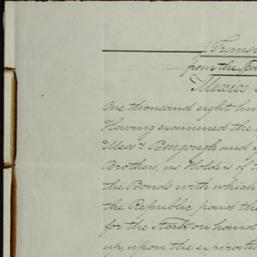 Trans
from the
Mexico
One thousand eight hun
Having examined the
Messrs Bengough and
Brothers, as Holders of t
the Bonds with which
the Republic paid the
for the Stock on hand
up, upon the expirati